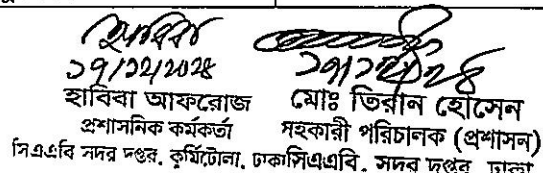 ১৭/১২/২০২৪
হাবিবা আফরোজ
প্রশাসনিক কর্মকর্তা
সিএএবি সদর দপ্তর, কুর্মিটোলা, ঢাকা
১৭/১২/২০২৪
মোঃ তিরান হোসেন
সহকারী পরিচালক (প্রশাসন)
সিএএবি, সদর দপ্তর, ঢাকা